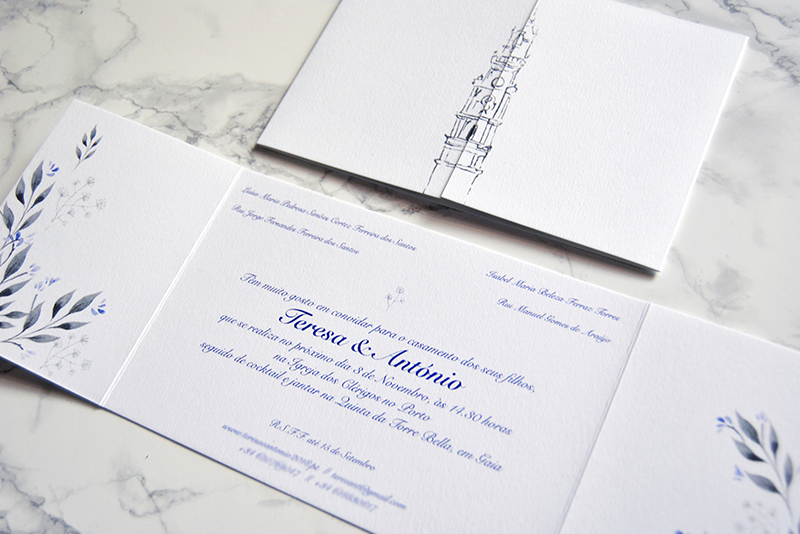 Luisa Maria Pedrosa Simões Cortez Ferreira dos Santos
Rui Jorge Fernandes Ferreira dos Santos
Isabel Maria Beleza Ferraz Torres
Rui Manuel Gomes de Araújo
Têm muito gosto em convidar para o casamento dos seus filhos,
Teresa & António
que se realiza no próximo dia 3 de Novembro, às 14.30 horas
na Igreja dos Clérigos no Porto
seguido de cocktail e jantar na Quinta da Torre Bella, em Gaia
R.S.F.F. até 15 de Setembro